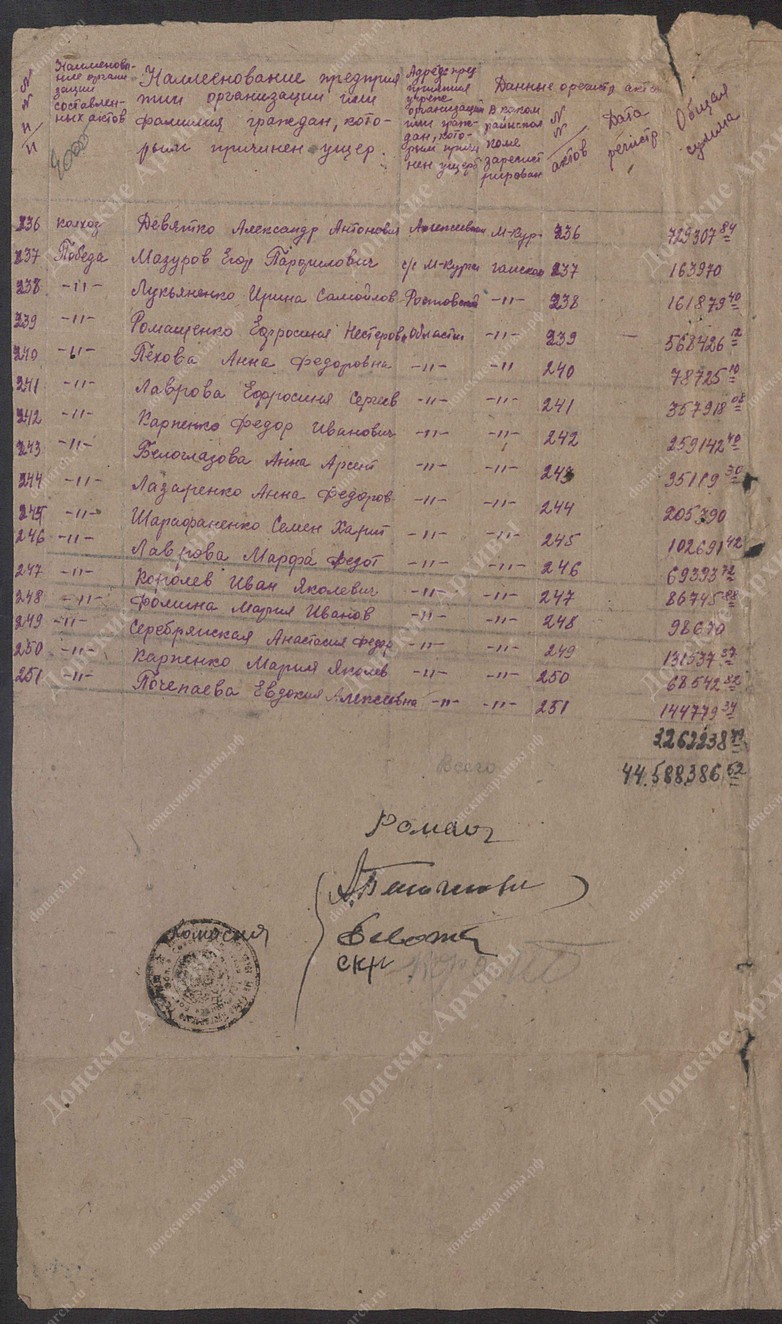 N N п/п
Наименова-
ние органи
зации
составлен-
ных актов
Наименование предприя
тий организации или
фамилия граждан, кото-
рым причинен ущер.
Адрес пред
приятия
учреж.
организации
или граж-
дан, кото-
рым причи
нен ущерб
Данные о регистр акта
В каком
районском
поме
зарегист
рирован
N N актов
Дата
регистр
Общая
сумма
236 колхоз Девятко Александр Антонович Алексеевский М-Кур- 236 729307 84
237 Победа Мазуров Егор Парфилович с/с М-Курган ганском 237 163970
238 -"- Лукьяненко Ирина Самойлов Ростовской -"- 238 161879 40
239 -"- Ромащенко Ефросиния Нестеровн области -"- 239 — 568426 12
240 -"- Пехова Анна Федоровна -"- -"- 240 78725 10
241 -"- Лаврова Ефросиния Сергеев -"- -"- 241 357918 08
242 -"- Карпенко Федор Иванович -"- -"- 242 259142 40
243 -"- Белоглазова Анна Арсент -"- -"- 243 95119 30
244 -"- Лазаренко Анна Федоров -"- -"- 244 205390
245 -"- Шарафаненко Семен Харит -"- -"- 245 102691 42
246 -"- Лаврова Марфа Федот -"- -"- 246 69393 72
247 -"- Королев Иван Яколевич -"- -"- 247 86745 88
248 -"- Фомина Мария Иванов -"- -"- 248 98670
249 -"- Серебрянская Анастасия Федор -"- -"- 249 131537 37
250 -"- Карпенко Мария Яколев -"- -"- 250 68542 52
251 -"- Почепаева Евдокия Алексеевна -"- -"- 251 144779 34
3262238 49
Всего 44.588.386 62
Комиссия
скр
Донские Архивы
donarch.ru
донскиеархивы.рф